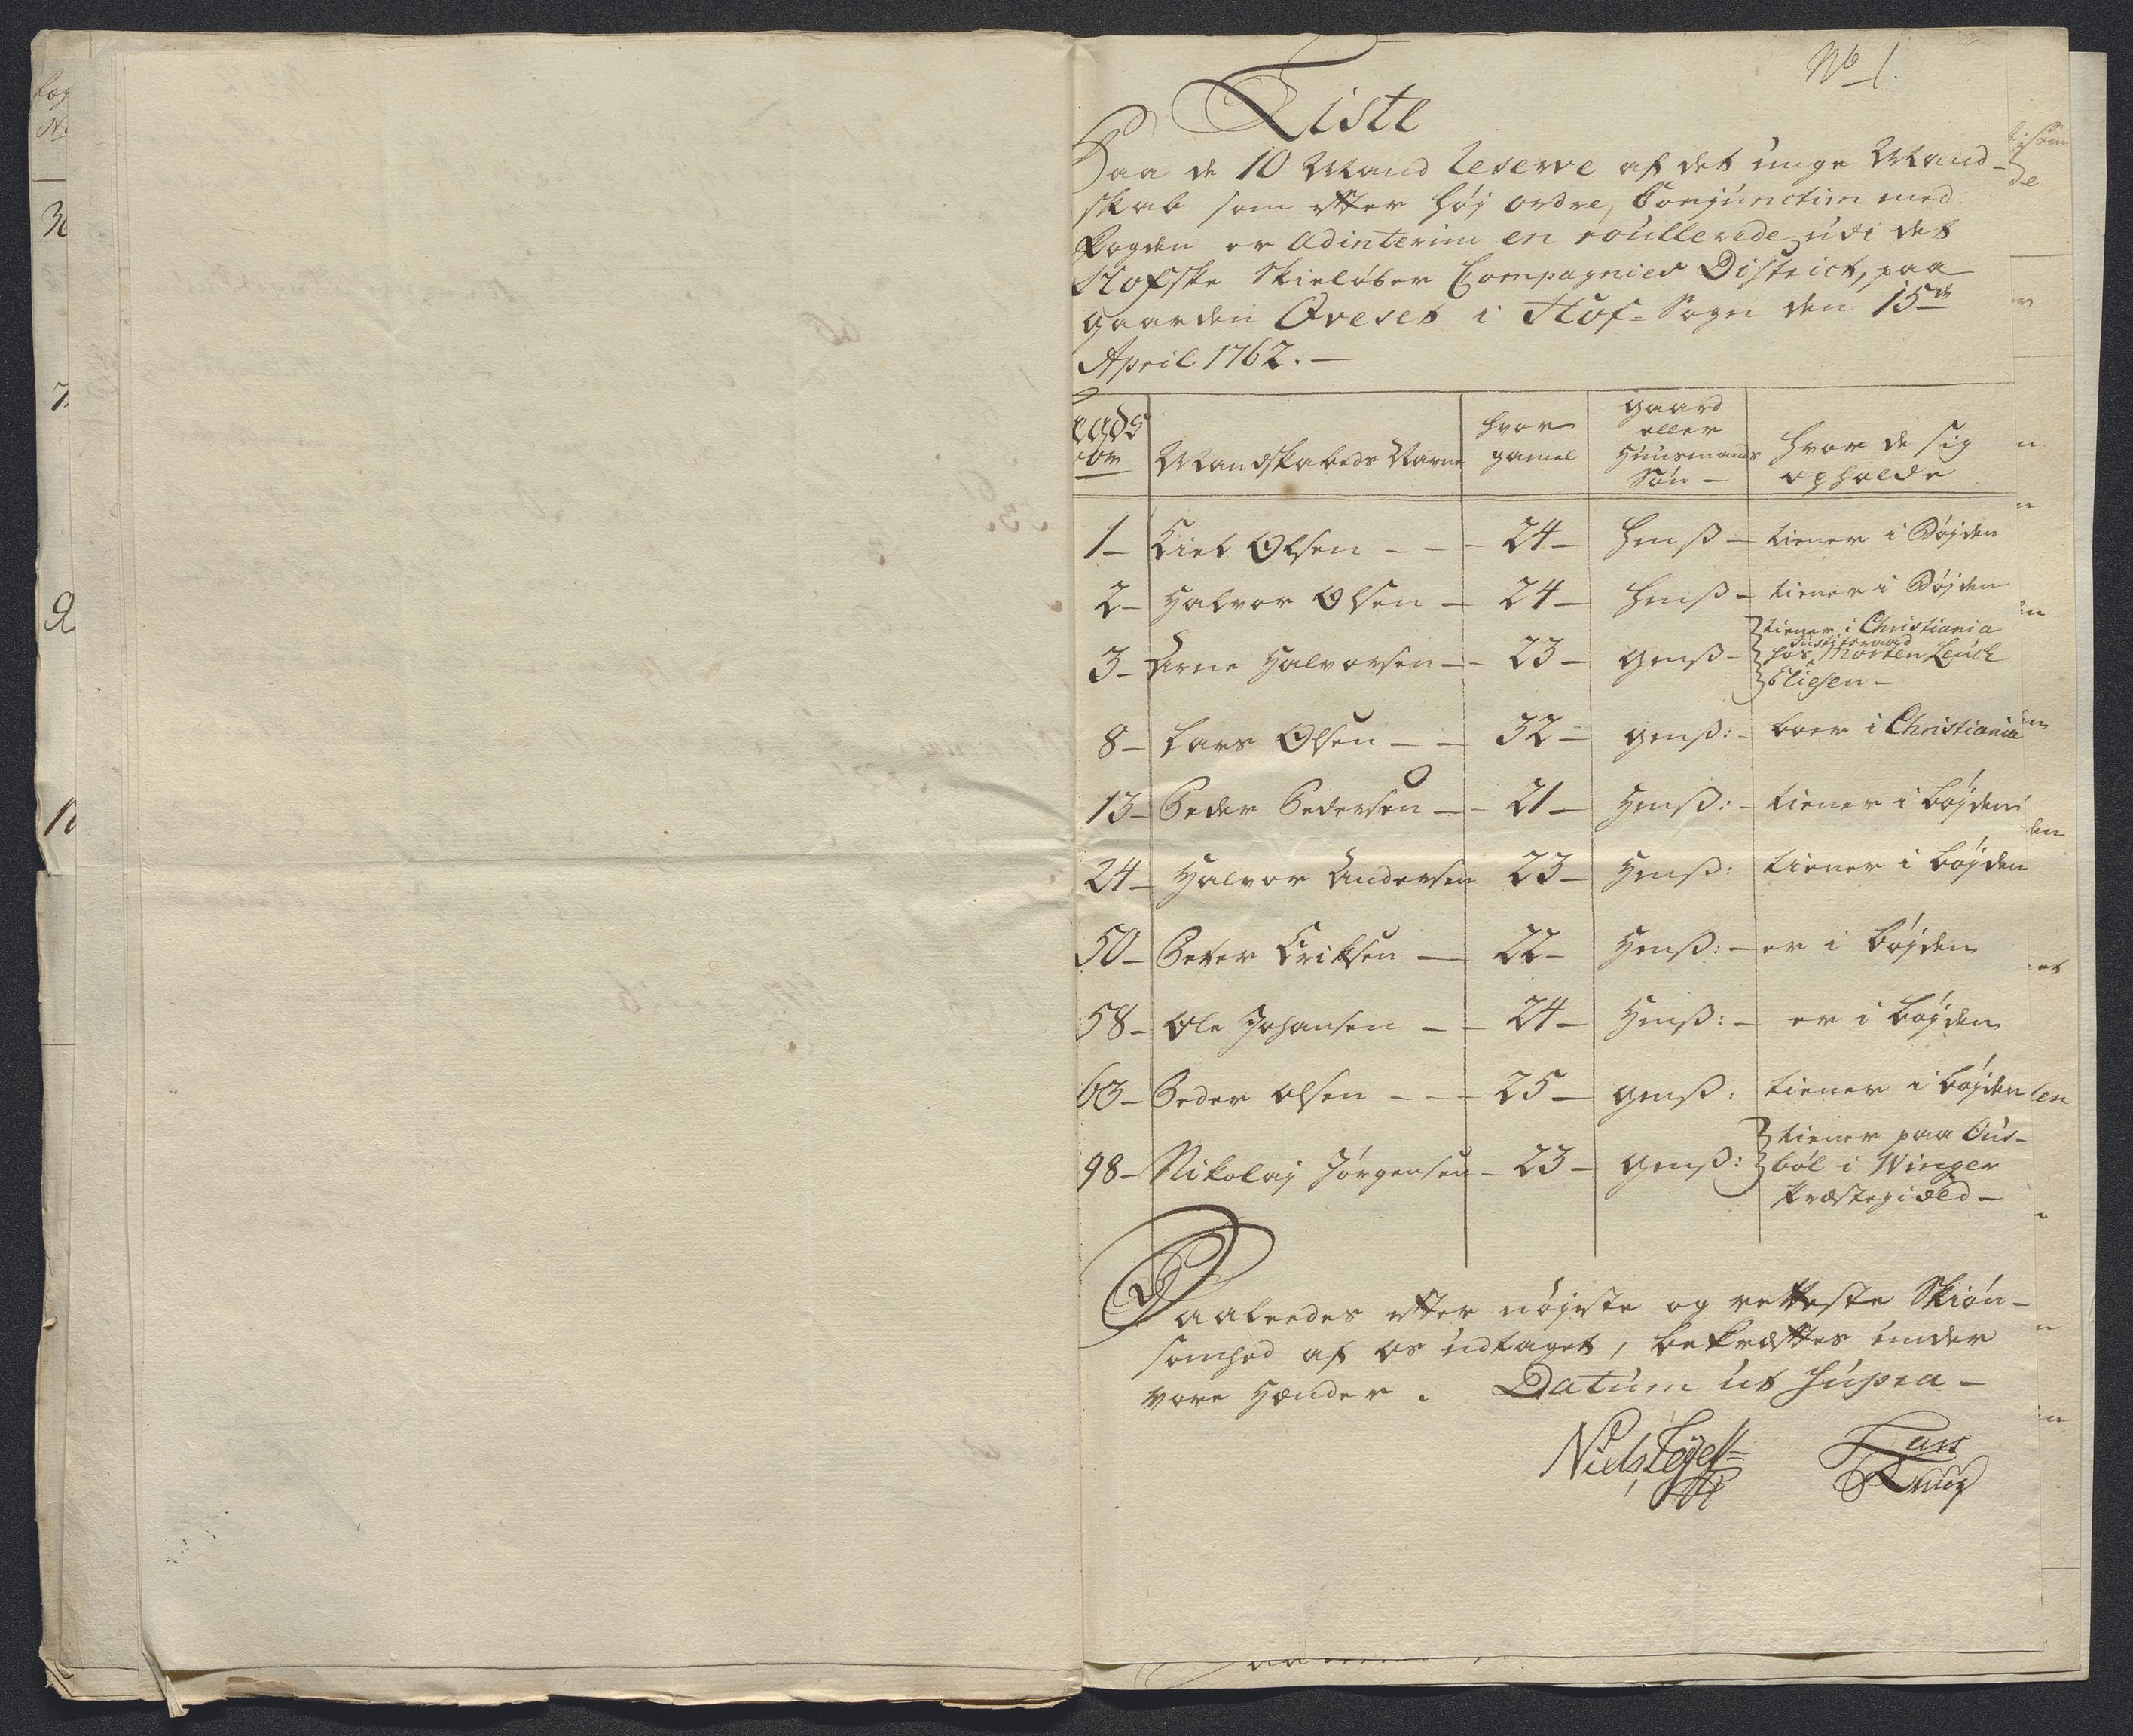 No 1.
Liste
Paa de 10 Mand Reserve af det unge Mand-
skab som efter høj ordre, Conjunctim med
Fogden er Adinterim en roullerede udi det
Hofske Skieløber Compagnies District, paa
gaarden Øveset i Hof-Sogn den 15de
April 1762.—
Mandskabets Navne
hvor gamel
gaard eller Huusmands Søn —
hvor de sig opholde
1— Kiel Olsen — — 24— hmß— tiener i Bøjden
2— Halvor Olsen — 24— hmß— tiener i Bøjden
3— Arne Halvorsen — 23— gmß— tiener i Christiania
hos Justitsraad Morten Leuch
Eliesen—
8— Lars Olsen — — 32— gmß:— boer i Christiania
13— Peder Pedersen — 21— Hmß:— tiener i bøjden
24— Halvor Andersen 23— Hmß: tiener i bøjden
50— Peter Eriksen — 22— Hmß:— er i bøjden
58— Ole Johansen — — 24— Hmß:— er i bøjden
63— Peder olsen — — 25— gmß: tiener i bøjden
98— Nikolaj Jørgensen— 23— gmß: tiener paa Ous-
bøl i Winger
Præstegiæld—
Saaleedes efter nøjeste og retteste Skiøn-
somhed af os udtaget, bekræftes under
vore Hænder. Datum ut supra—
Niels
Lars